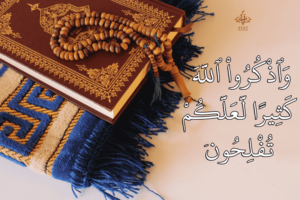 وَٱذْكُرُوا۟ ٱللَّهَ
كَثِيرًا لَّعَلَّكُمْ
تُفْلِحُونَ